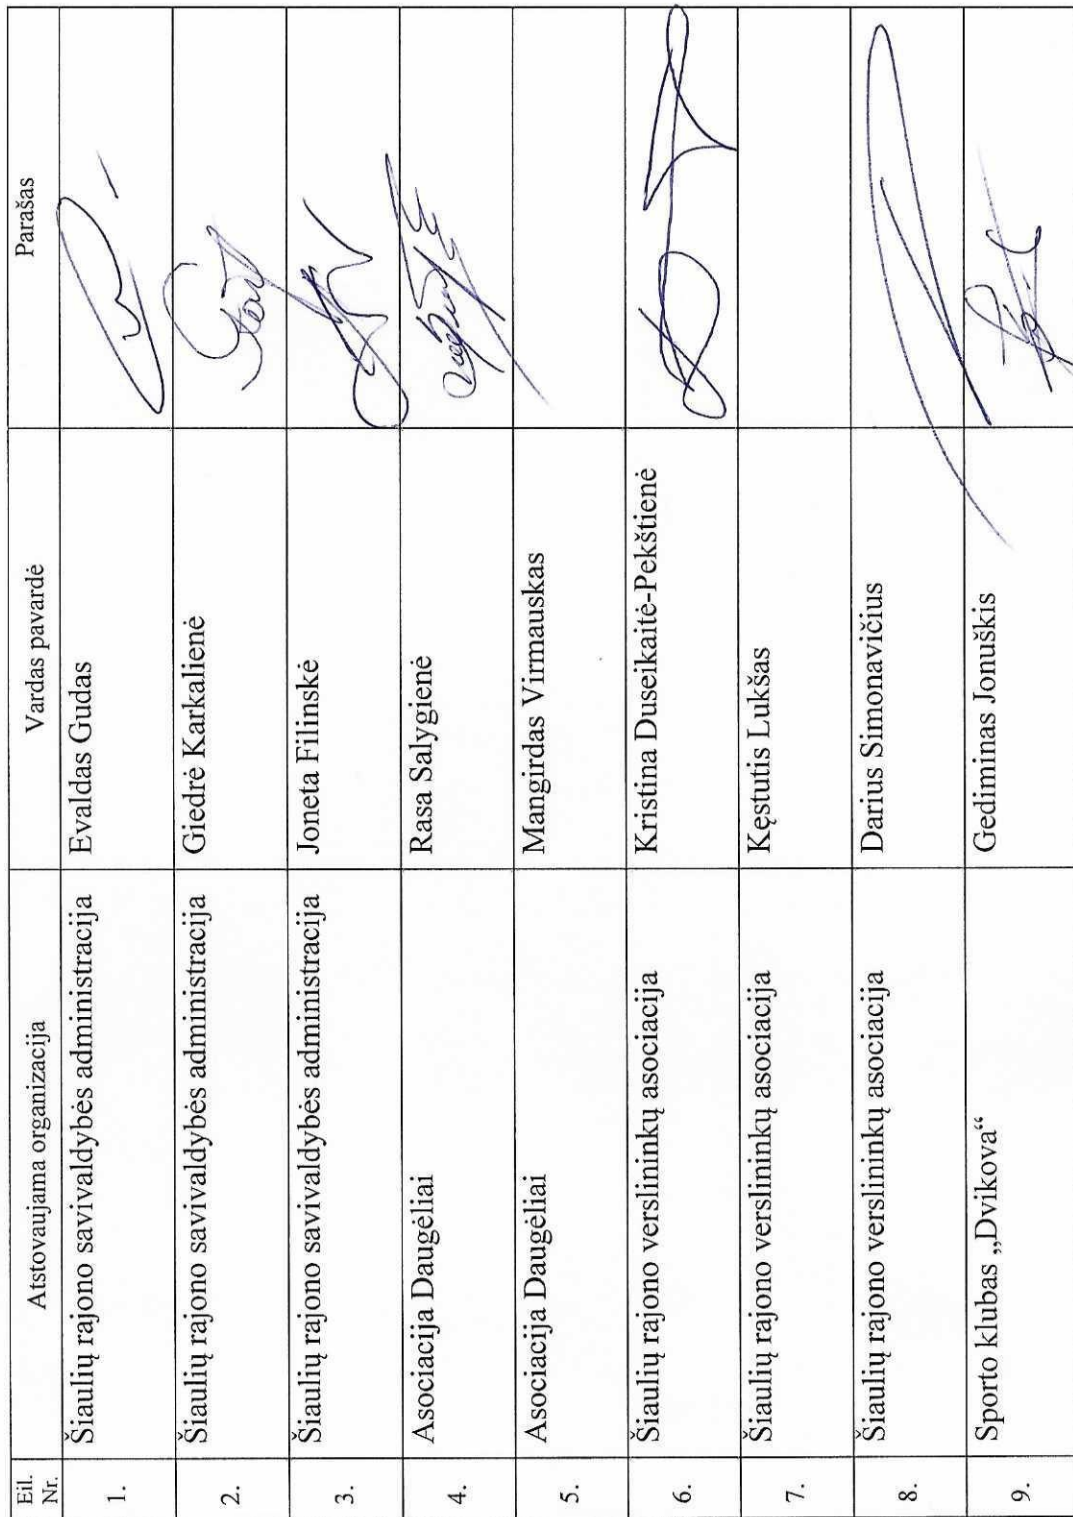 Eil. Nr. Atstovaujama organizacija Vardas pavardė Parašas
1. Šiaulių rajono savivaldybės administracija Evaldas Gudas
2. Šiaulių rajono savivaldybės administracija Giedrė Karkalienė
3. Šiaulių rajono savivaldybės administracija Joneta Filinskė
4. Asociacija Daugėliai Rasa Salygienė
5. Asociacija Daugėliai Mangirdas Virmauskas
6. Šiaulių rajono verslininkų asociacija Kristina Duseikaitė-Pekštienė
7. Šiaulių rajono verslininkų asociacija Kęstutis Lukšas
8. Šiaulių rajono verslininkų asociacija Darius Simonavičius
9. Sporto klubas „Dvikova“ Gediminas Jonuškis